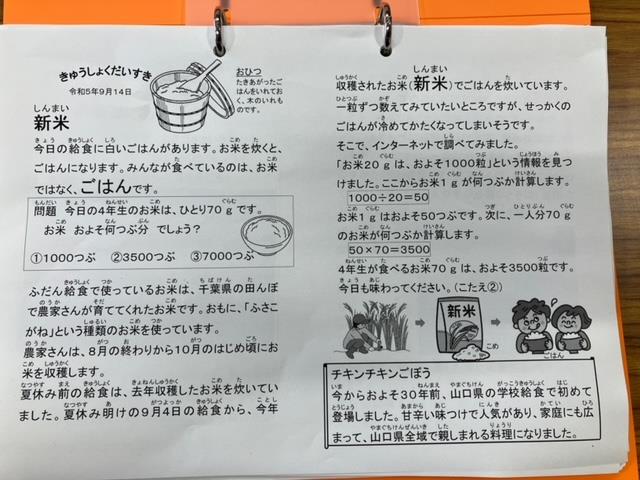 きゅうしょくだいすき
令和5年9月14日
おひつ
たきあがったご
はんをいれてお
く、木のいれも
のです。
新米
しんまい
今日の給食に白いごはんがあります。お米を炊くと、
ごはんになります。みんなが食べているのは、お米
ではなく、ごはんです。
問題 今日の4年生のお米は、ひとり70gです。
お米 およそ何つぶ分 でしょう?
①1000つぶ ②3500つぶ ③7000つぶ
ふだん給食で使っているお米は、千葉県の田んぼ
で農家さんが育ててくれたお米です。おもに、「ふさこ
がね」という種類のお米を使っています。
農家さんは、8月の終わりから10月のはじめ頃にお
米を収穫します。
夏休み前の給食は、去年収穫したお米を炊いてい
ました。夏休み明けの9月4日の給食から、今年
収穫されたお米(新米)でごはんを炊いています。
一粒ずつ数えてみていたいところですが、せっかくの
ごはんが冷めてかたくなってしまいそうです。
そこで、インターネットで調べてみました。
「お米20gは、およそ1000粒」という情報を見つ
けました。ここからお米1gが何つぶか計算します。
1000÷20=50
お米1gはおよそ50つぶです。次に、一人分70g
のお米が何つぶか計算します。
50×70=3500
4年生が食べるお米70gは、およそ3500粒です。
今日も味わってください。(こたえ②)
新米
こめ
ごはん
チキンチキンごぼう
今からおよそ30年前、山口県の学校給食で初めて
登場しました。甘辛い味つけで人気があり、家庭にも広
まって、山口県全域で親しまれる料理になりました。